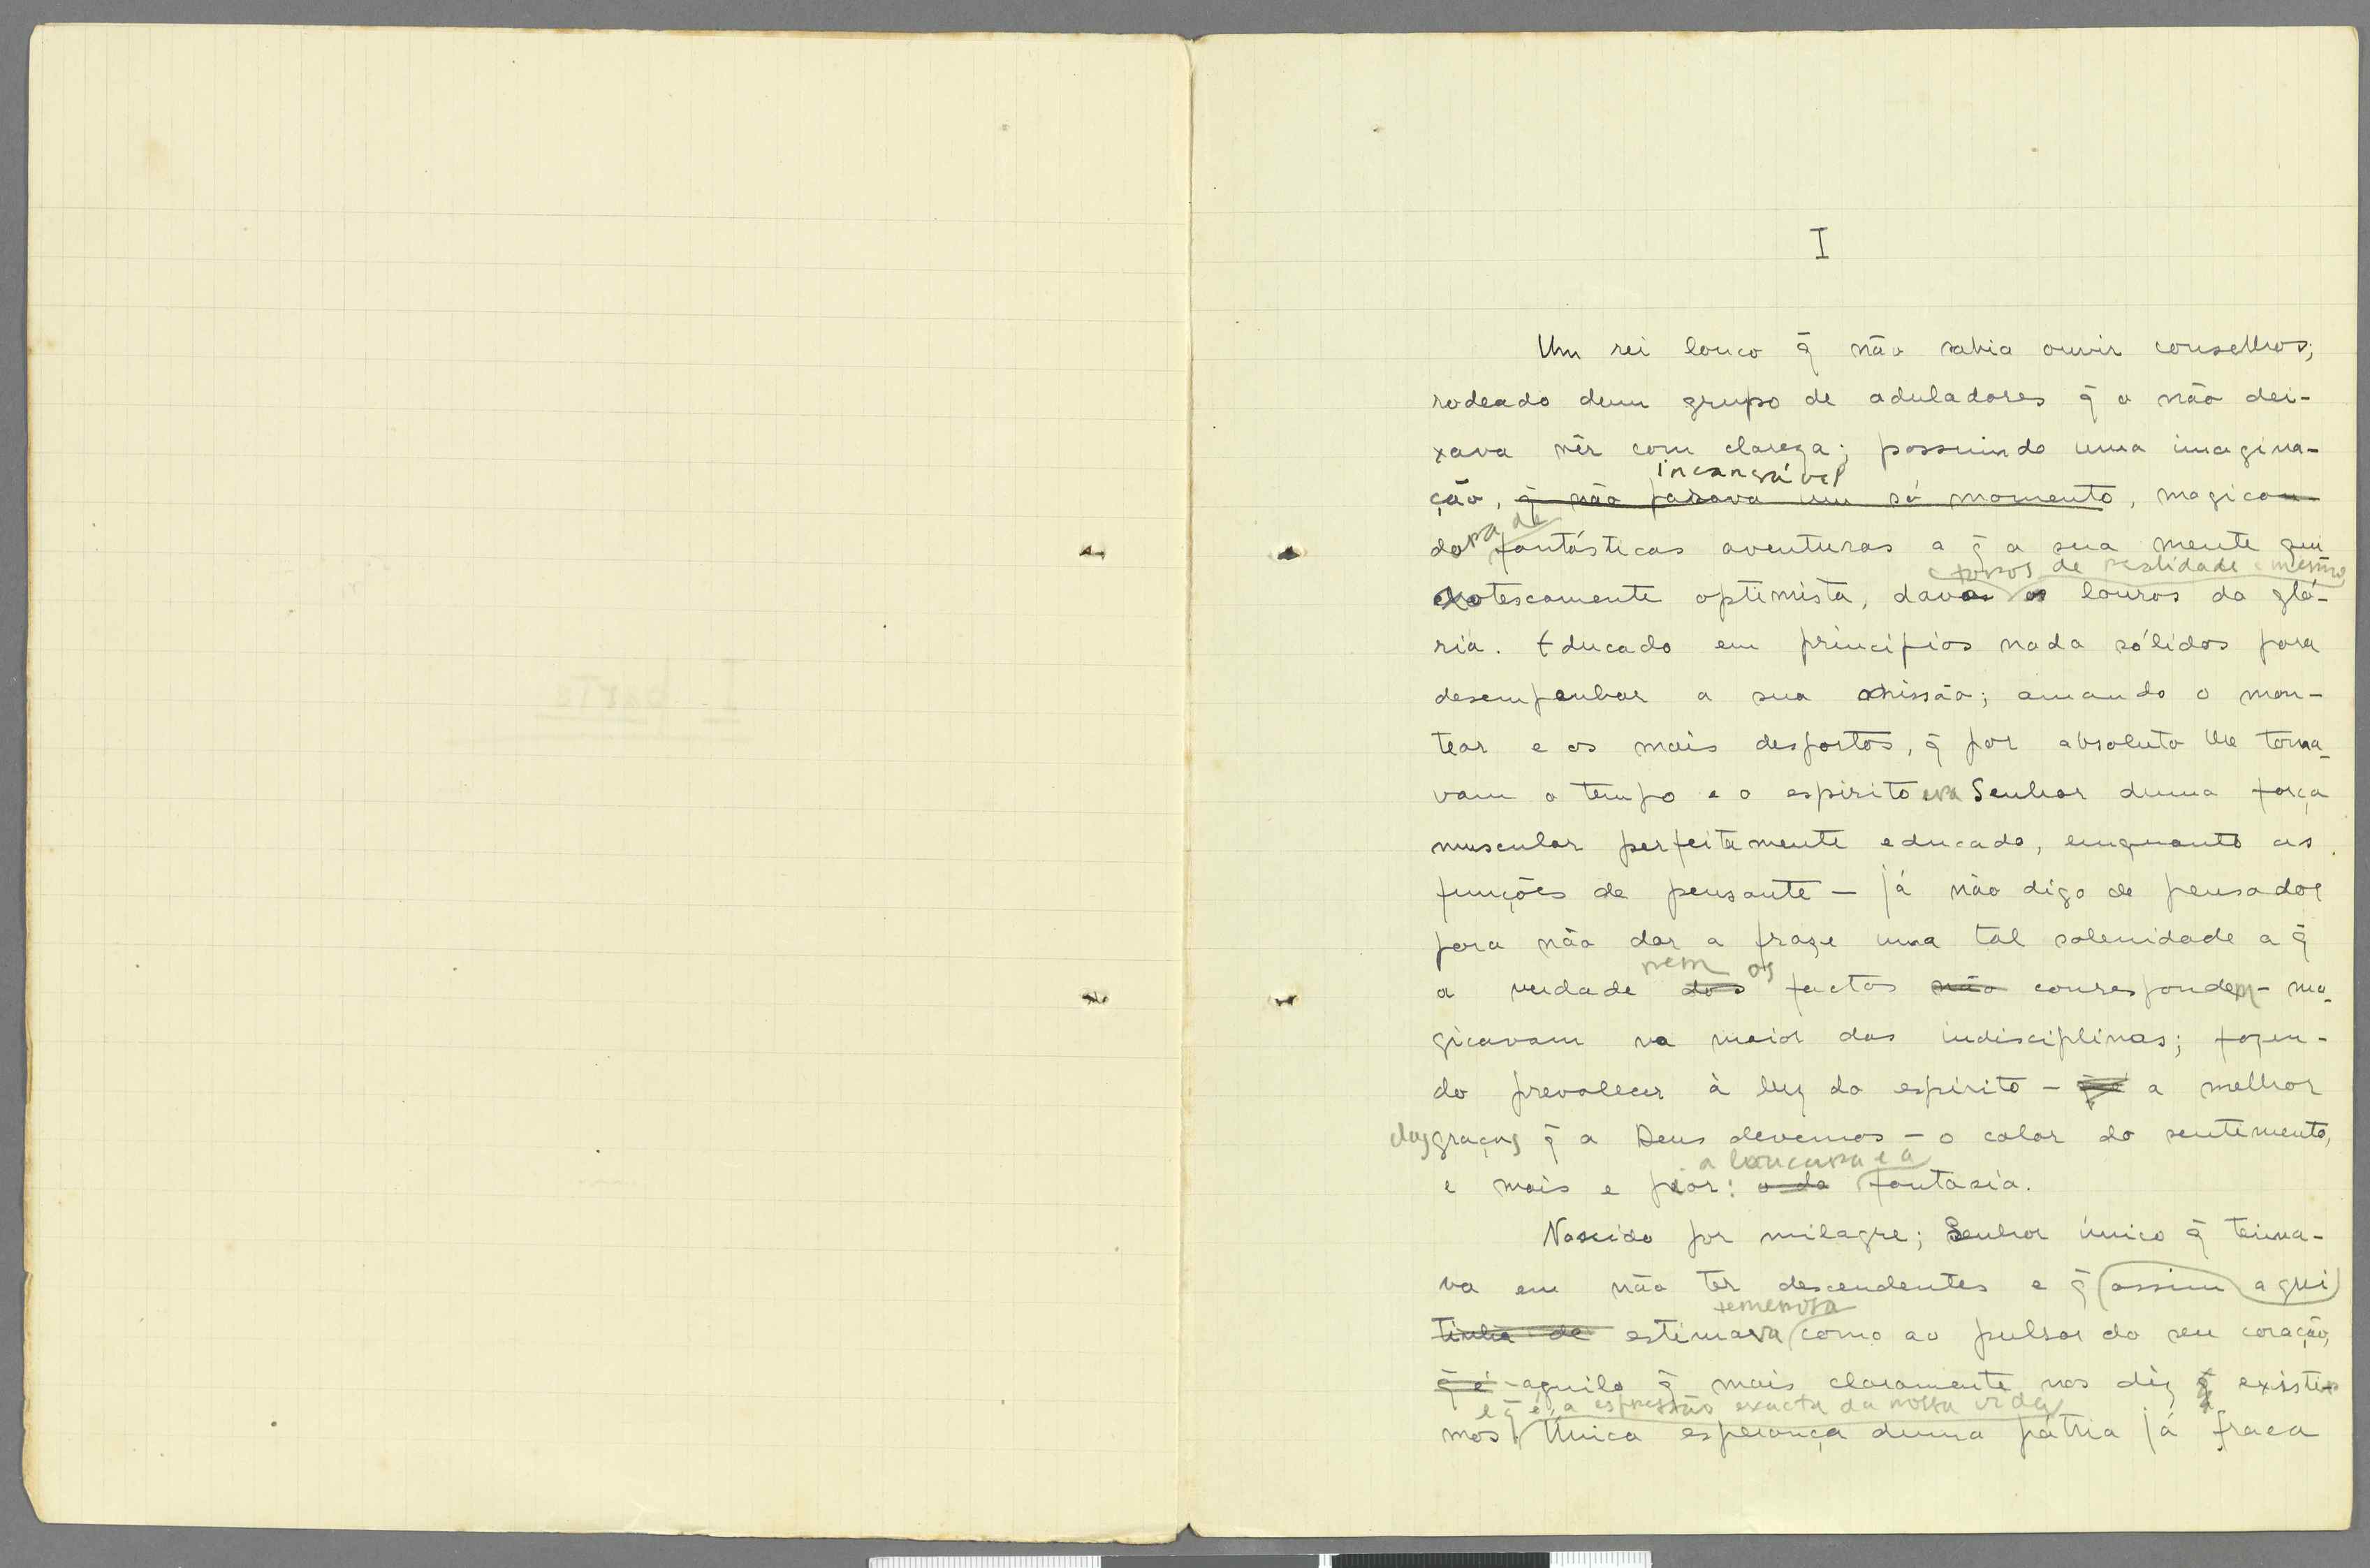 I
Um rei louco q̃ não sabia ouvir conselhos;
rodeado dum grupo de aduladores q̃ o não dei-
xava vêr com clareza; possuindo uma imagina-
incansável
ção, q̃ não parava um só momento, magican
do va de fantásticas aventuras a q̃ a sua mente
foros de realidade e mesmo
otescamente optimista, dava os louros da gló-
ria. Educado em princípios nada sólidos para
desempenhar a sua missão; amando o mon-
tear e os mais desportos, q̃ por absoluto lhe toma-
vam o tempo e o espirito era Senhor duma força
muscular perfeitamente educada, emquanto as
funções de pensante - já não digo de pensador
para não dar a fraze uma tal solenidade a q̃
nem os
a verdade dos factos não correspondem - ma-
gicavam na maior das indisciplinas; fazen-
do prevalecer à luz do espirito - q̃ é a melhor
das graças q̃ a Deus devemos - o calor do sentimento,
a loucura e a
e mais e peor: o da fantasia.
Nascido por milagre; Senhor único q̃ teima-
va em não ter descendentes e q̃ assim a grei
temerosa
tinha de estimava como ao pulsar do seu coração,
q̃ é - aquilo q̃ mais claramente nos diz q̃ existi-
e q̃ é a espressão exacta da nossa vida
mos. Única esperança duma pátria já fraca
I parte